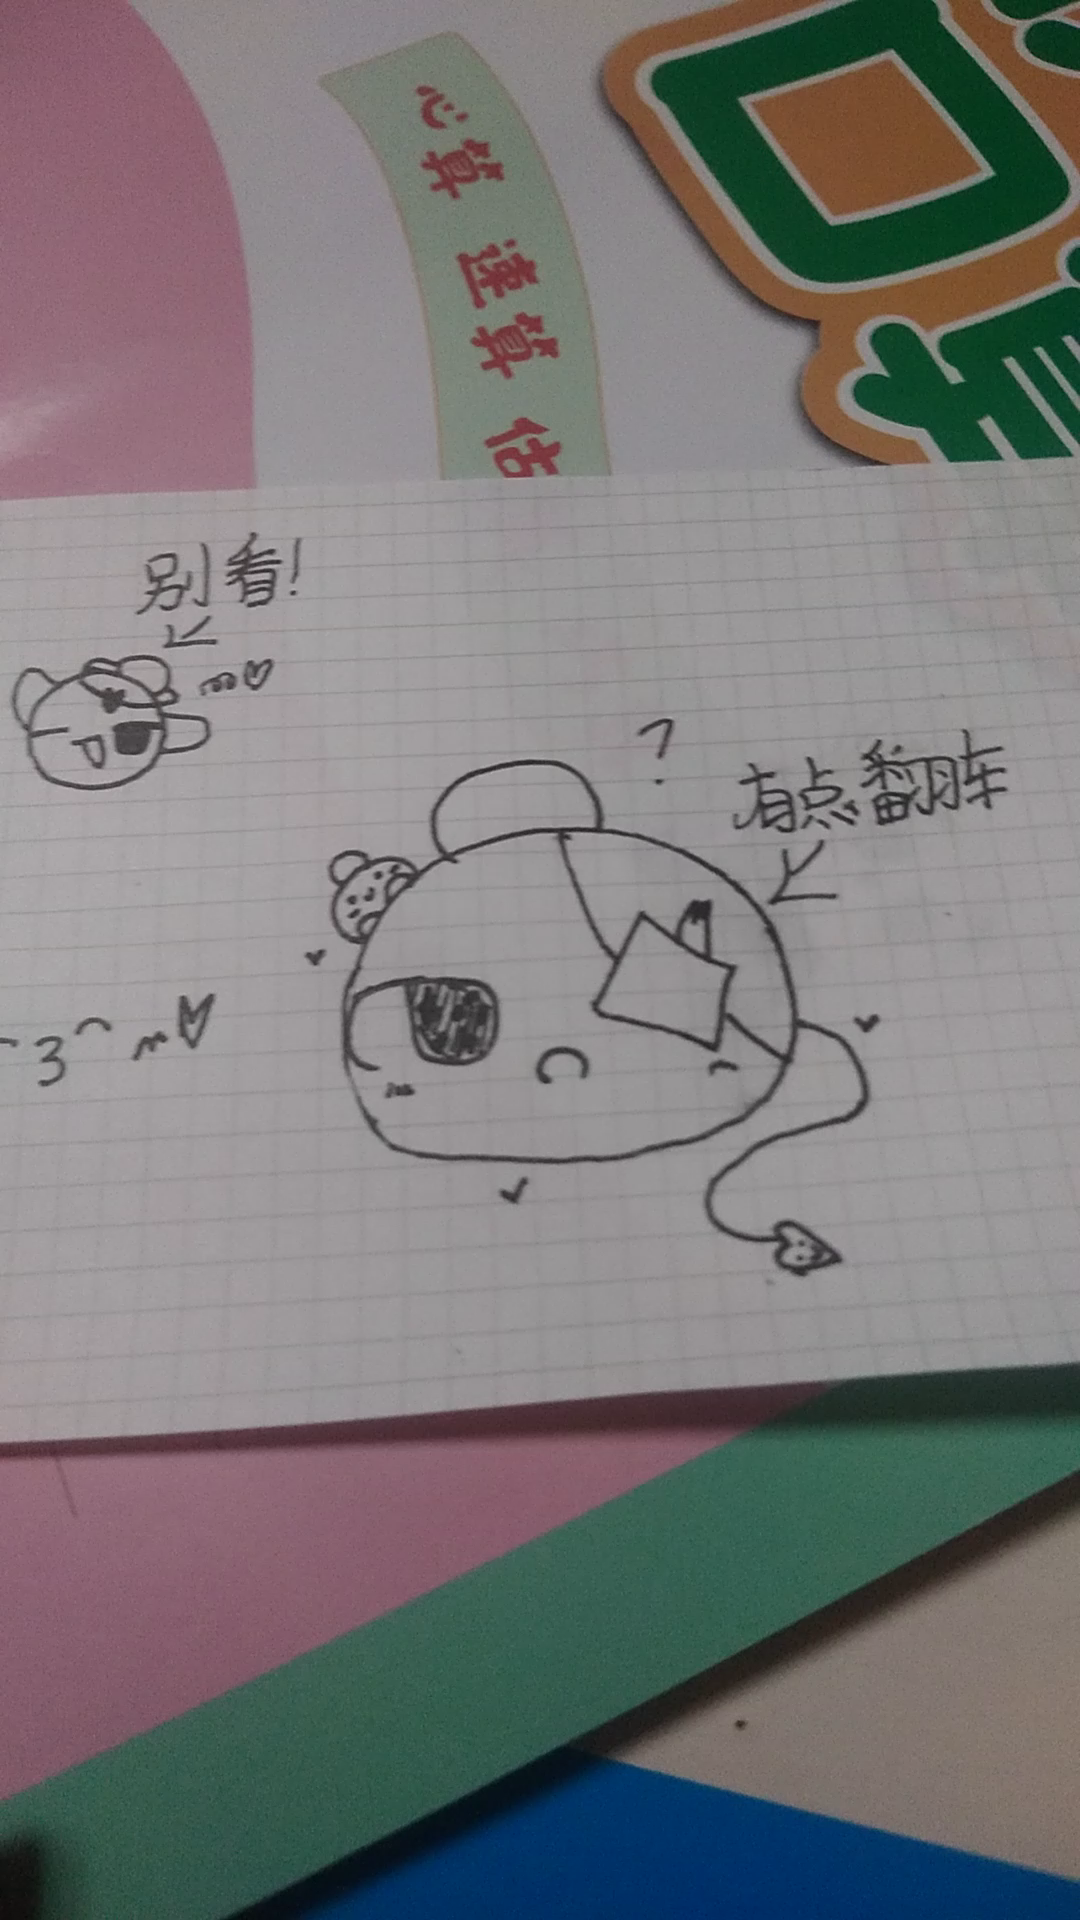 心算 速算 估
口
别看!
?
有点翻车
^3^ ~♡